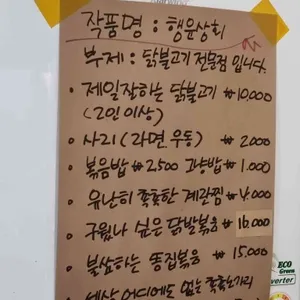 작품명 : 행운상회
부제 : 닭불고기 전문점 입니다.
• 제일 잘하는 닭불고기 ₩10,000
(2인 이상)
• 사리 (라면 우동) ₩2000
• 볶음밥 ₩2500 공깃밥 ₩1.000
• 유난히 촉촉한 계란찜 ₩4.000
• 구웠나 싶은 닭발볶음 ₩16.000
• 불쌍하는 똥집볶음 ₩15.000
• 세상 어디에도 없는
ECO
Green
verter